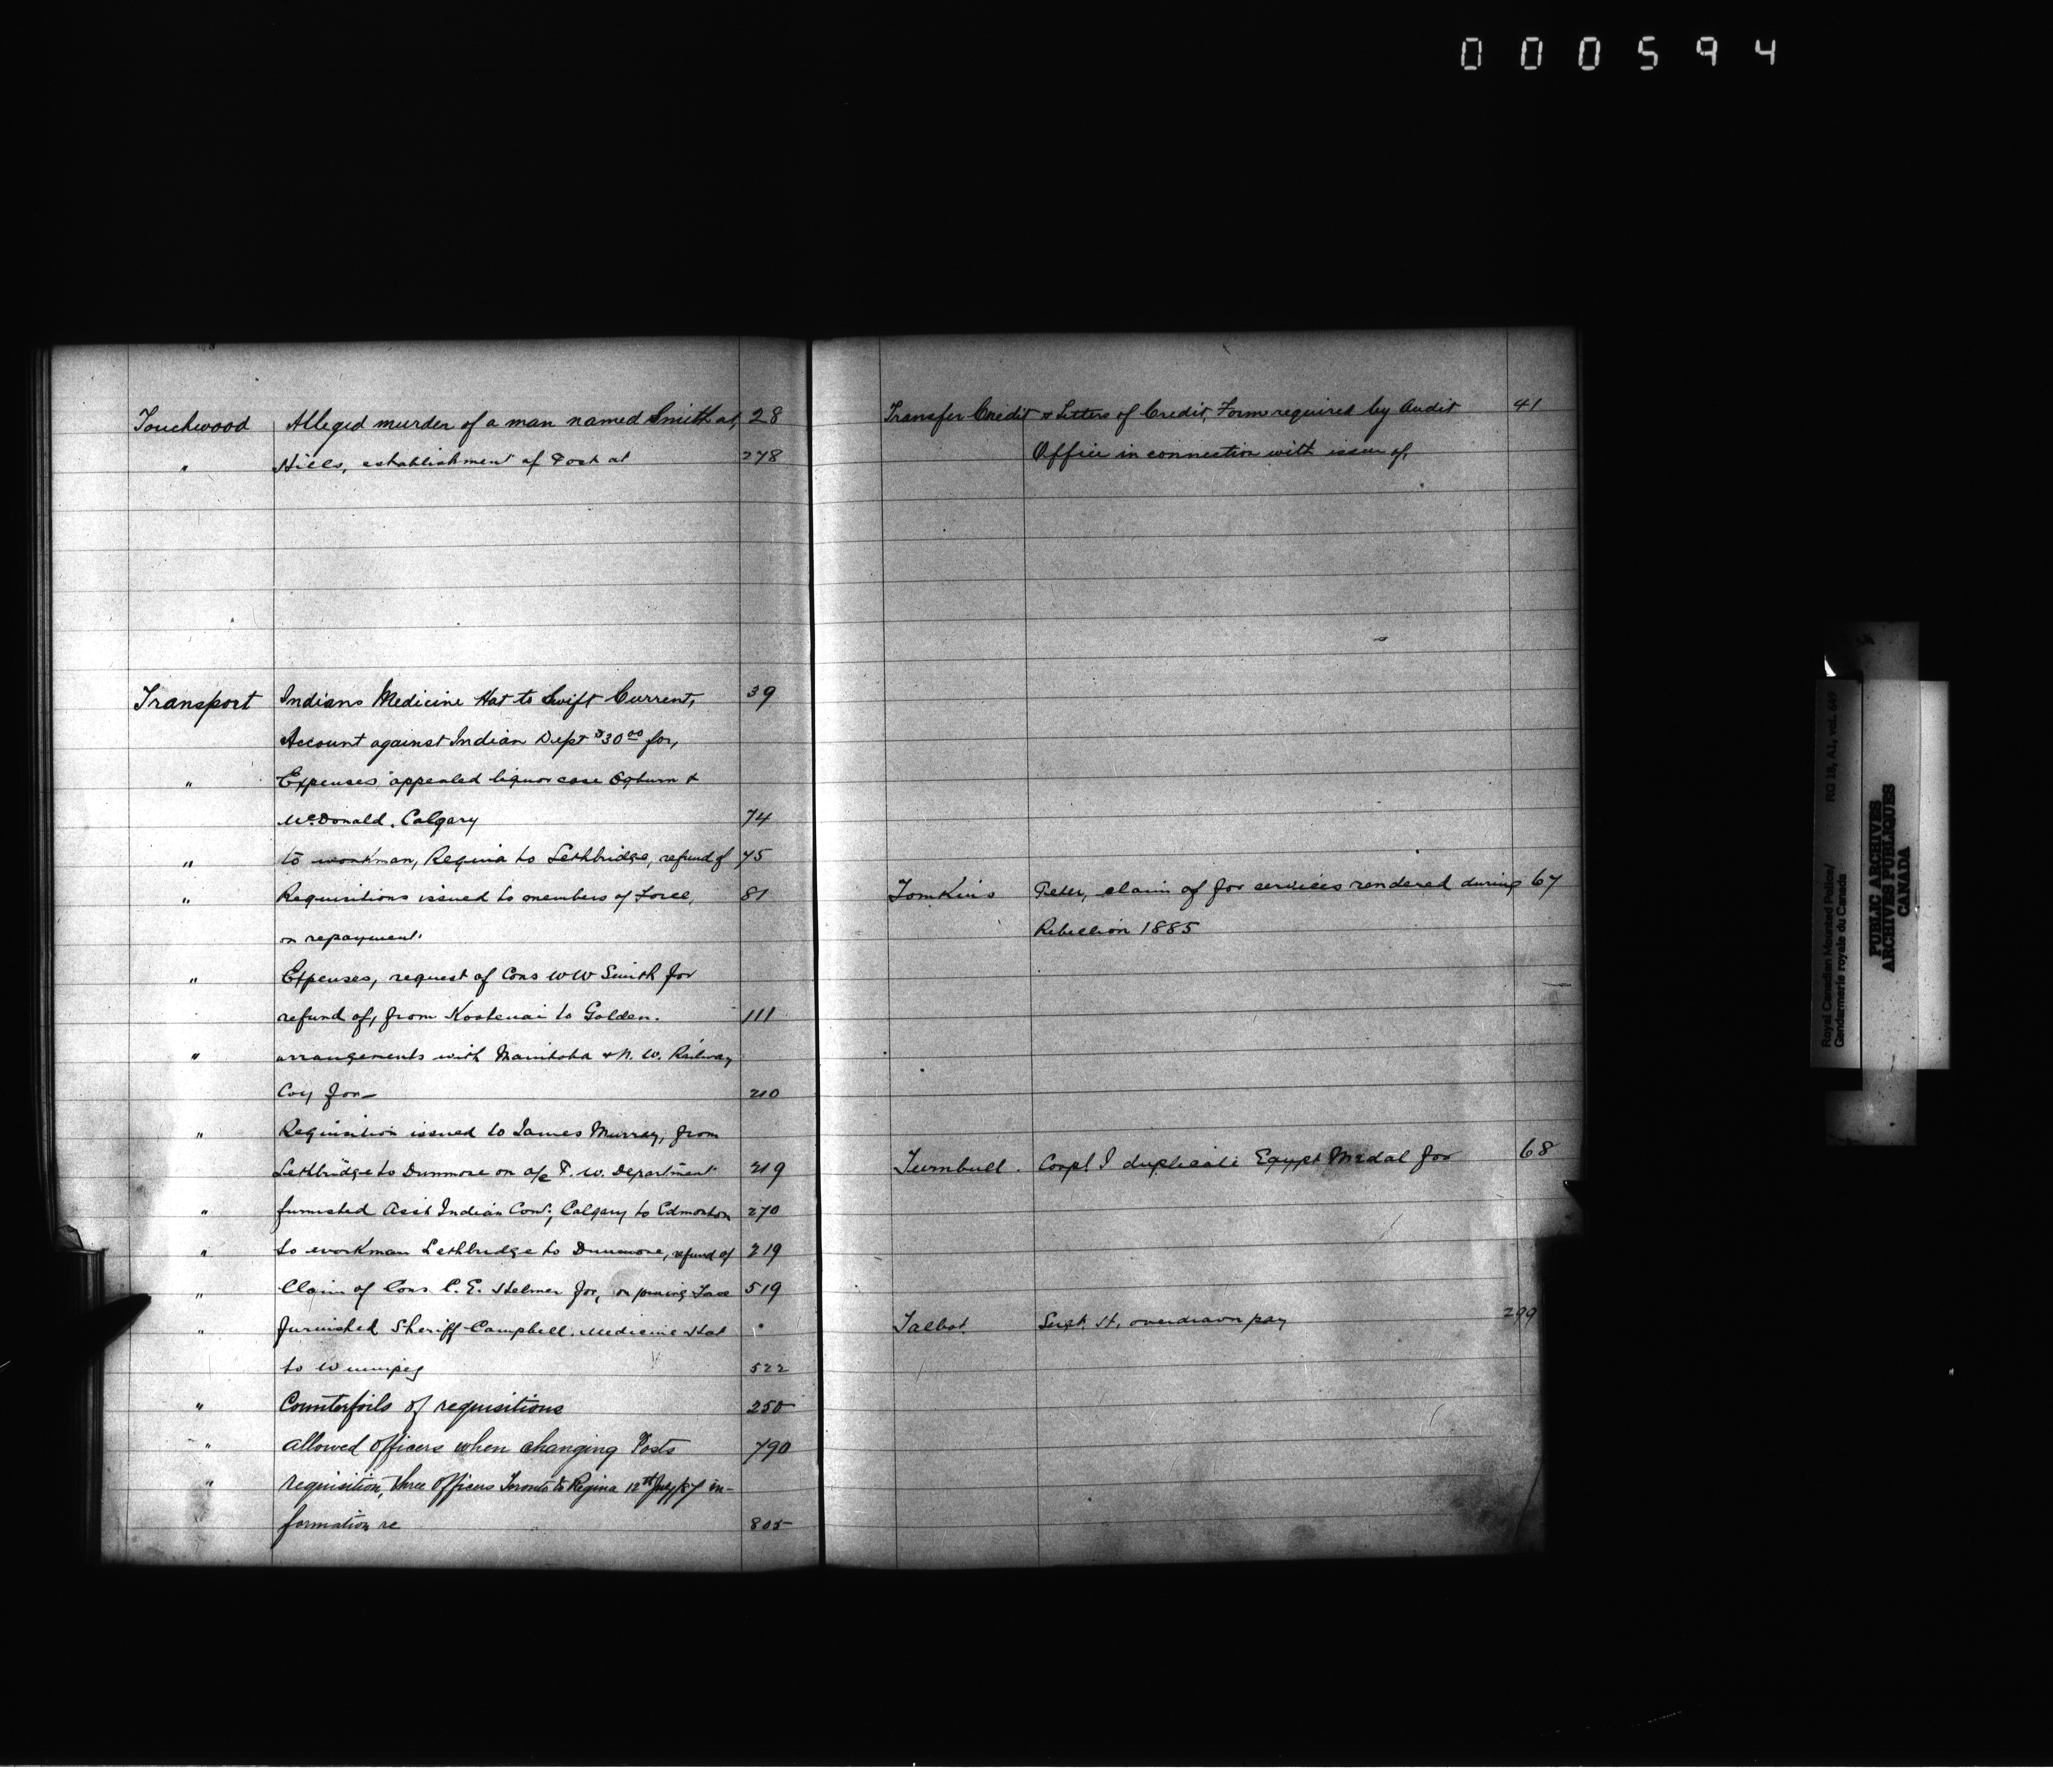 000594
Touchwood Alleged murder of a man named Smith at, 28
" Hills, establishment of Post at 278
Transport Indians Medicine Hat to Swift Current, 39
Account against Indian Dept $30.00 for,
" Expenses appealed liquor case Ogburn &
McDonald. Calgary 74
" to workman, Regina to Lethbridge, refund of 75
" Requisitions issued to members of Force, 81
on repayment.
" Expenses, request of Cons W W Smith for
refund of, from Kootenai to Golden. 111
" arrangements with Manitoba & N. W. Railway
Coy for 210
" Requisition issued to James Murray, from
Lethbridge to Dunmore on a/c P. W. Department 219
" furnished Asst Indian Comr, Calgary to Edmonton 270
" to workman Lethbridge to Dunmore, refund of 219
" Claim of Cons C. E. Helmer for, on joining Force 519
" furnished Sheriff Campbell. Medicine Hat "
to Winnipeg 522
" Counterfoils of requisitions 250
" allowed officers when changing Posts 790
" requisition, three Officers Toronto to Regina 12th July/87 in-
formation re 805
Transfer Credit & Letters of Credit, Form required by Audit 41
Office in connection with issue of,
Tomkins Peter, claim of for services rendered during 67
Rebellion 1885
Turnbull. Corpl J duplicate Egypt Medal for 68
Talbot. Sergt. H. overdrawn pay 299
Royal Canadian Mounted Police/
Gendarmerie royale du Canada
RG 18, A1, vol. 649
PUBLIC ARCHIVES
ARCHIVES PUBLIQUES
CANADA